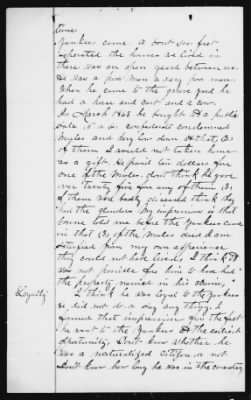 time
Yankees came. A bout 500 feet
seperated the homes we lived in
there was an open yeard between us.
He was a poor man & very poor man.
When he came to the grove yard he
had a horse and cart and a cow.
In March 1865 he bought at a public
sale condemned
Mules and they low down at that (3)
of them I would not taken home
as a gift. He paid ten dollars for
one of the Mules. dont think he gave
over twenty five for any of them (3)
of them was badly diseased think they
had the glanders. My impression is that
some told me before the Yankees came
in that (3) of the Mules died & am
satisfied from my own experience
they could not have lived. I think it
was not possible for him to have had
the property named in his claim.
Loyalty
I think he was loyal to the Yankees
he did not do a day any thing. I
formed that impression from the fact
he went to the Yankees at the earliest
opportunity. Dont know whether he
was a naturalized citizen or not
Dont know how long he was in the country